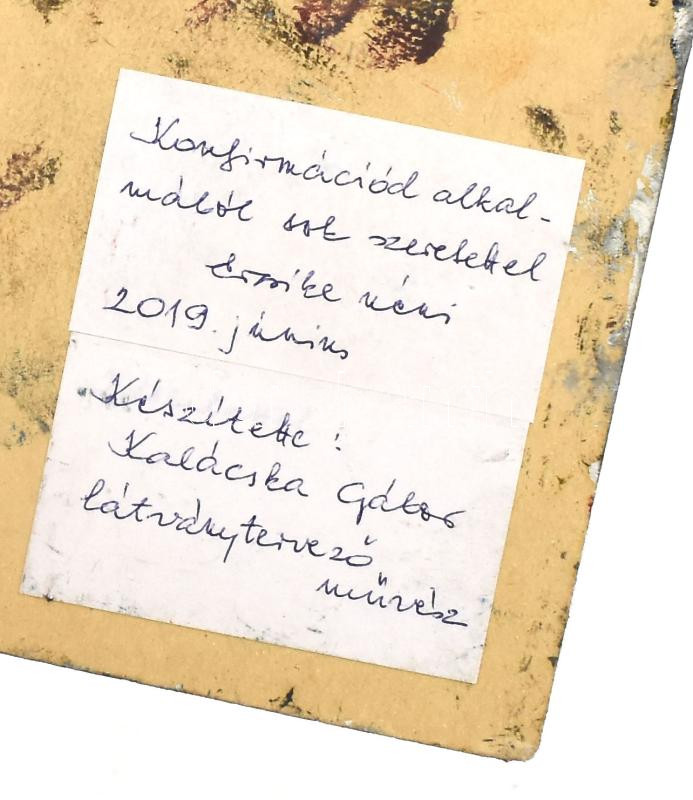 Konfirmációd alkal-
mából sok szeretettel
Erzsike néni
2019. június
Készítette:
Kalácska Gábor
látványtervező
művész